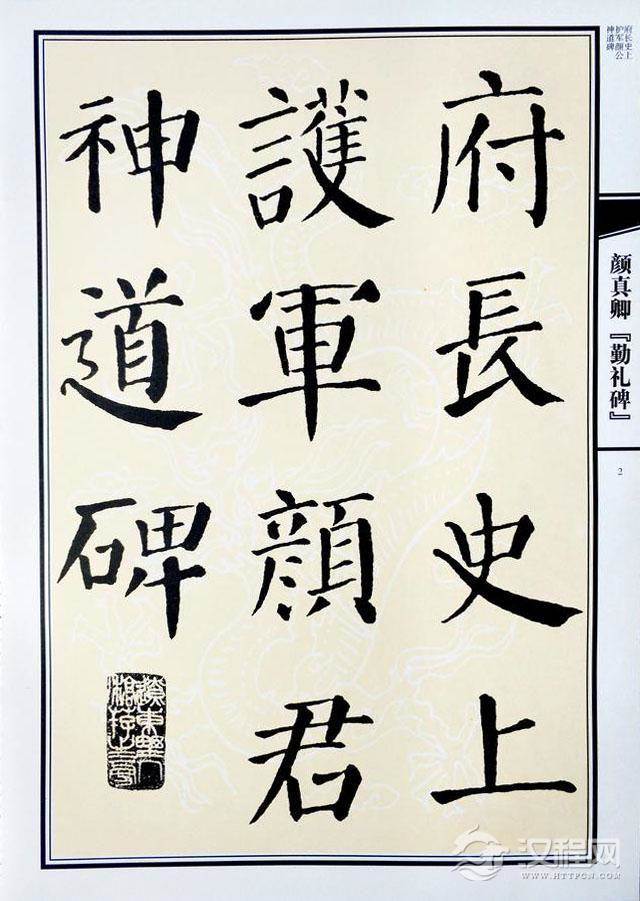 府長史上
護軍顏君
神道碑
府长史上
护军颜公
神道碑
颜真卿『勤礼碑』
2
汉程网
HTTPCN.COM